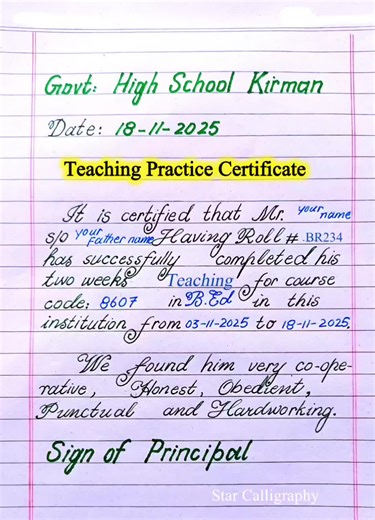 Govt: High School Kirman
Date: 18-11-2025
Teaching Practice Certificate
It is certified that Mr. your name
s/o your Father name Having Roll # BR234
has successfully completed his
two weeks Teaching for course
code: 8607 in B.Ed in this
institution from 03-11-2025 to 18-11-2025.
We found him very co-ope-
rative, Honest, Obedient,
Punctual and Hardworking.
Sign of Principal
Star Calligraphy